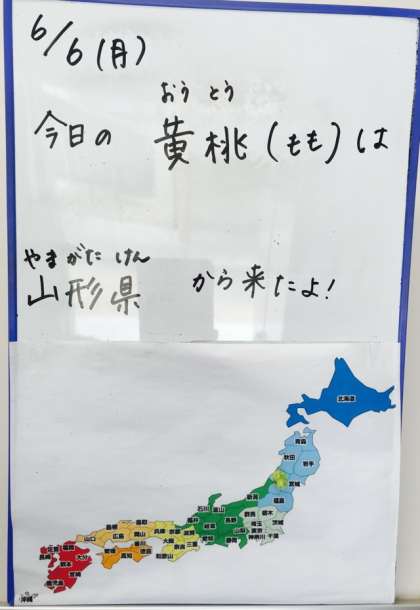 6/6(月)
おうとう
今日の 黄桃(もも)は
やまがたけん
山形県 から来たよ!
北海道
青森
秋田
岩手
宮城
新潟
福島
石川 富山
群馬 栃木
福井
長野
埼玉 茨城
岐阜
山梨 東京
愛知
静岡
神奈川 千葉
島根
鳥取
兵庫 京都
滋賀
山口
広島
岡山
大阪
奈良
三重
香川
愛媛
高知
徳島
和歌山
佐賀
福岡
長崎
大分
熊本
宮崎
鹿児島
沖縄